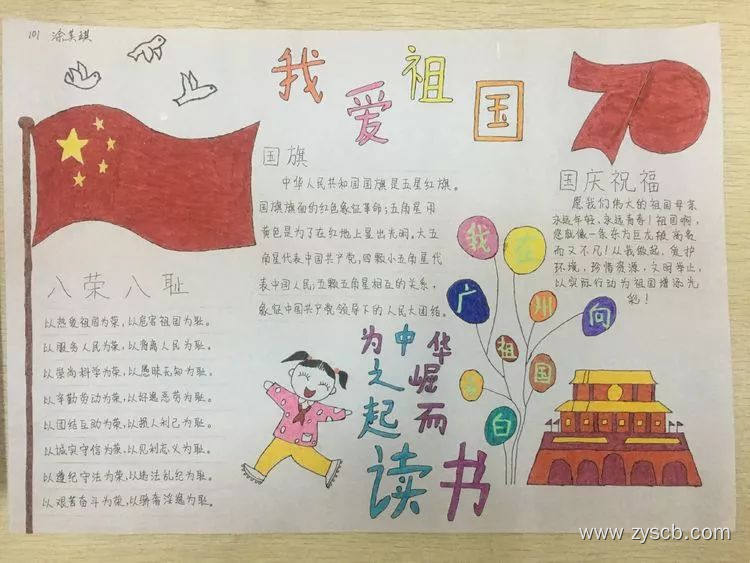 101 涂其琪
我爱祖国
70
国旗
中华人民共和国国旗是五星红旗。
国旗旗面的红色象征革命;五角星用
黄色是为了在红地上显出光明。大五
角星代表中国共产党,四颗小五角星代
表中国人民;五颗五角星相互的关系,
象征中国共产党领导下的人民大团结。
国庆祝福
愿我们伟大的祖国母亲
永远年轻,永远青春!祖国啊,
您就像一条东方巨龙般高贵
而又不凡!从我做起,爱护
环境,珍惜资源,文明举止,
以实际行动为祖国增添光
彩!
八荣八耻
以热爱祖国为荣,以危害祖国为耻。
以服务人民为荣,以背离人民为耻。
以崇尚科学为荣,以愚昧无知为耻。
以辛勤劳动为荣,以好逸恶劳为耻。
以团结互助为荣,以损人利己为耻。
以诚实守信为荣,以见利忘义为耻。
以遵纪守法为荣,以违法乱纪为耻。
以艰苦奋斗为荣,以骄奢淫逸为耻。
为中华
之崛
起而
读书
我在
广州向
祖国
告白
www.zyscb.com